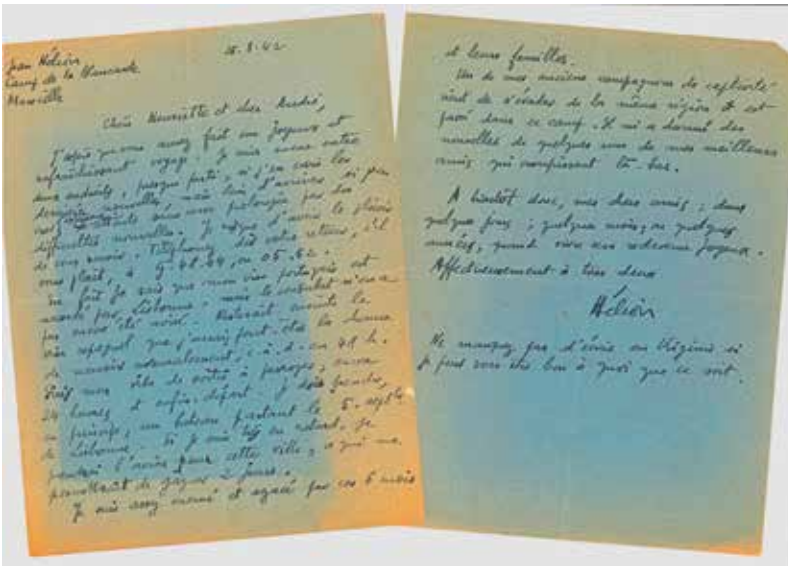 Jean Hélion
Camp de la Blancarde
Marseille
28.8.42
Chère Henriette et cher André,
J'espère que vous avez fait un joyeux et
rafraîchissant voyage. Je suis sous
deux , presque parti, si j'en crois les
dernières nouvelles, mais loin d'arriver, si
prolongée par des
difficultés nouvelles. Je d'avoir le plaisir
de vous revoir. Téléphonez dès votre retour, s'il
vous plaît, à
En fait je sais que mon visa portugais est
accordé par Lisbonne. mais le consulat n'en a
pas encore été avisé. Resterait ensuite le
visa espagnol que j'aurai peut-être la chance
de recevoir normalement, c.à.d. en 48 h.
Puis mon visa de sortie à proroger, encore
24 heures, et enfin départ. Je dois prendre,
en principe, un bateau partant le 5 septbre
de Lisbonne. Si je suis en retard, je
prendrai l'avion pour cette ville, ce qui me
permettrait de gagner 2 jours.
Je suis assez énervé et agacé par ces 6 mois
et leurs familles.
Un de mes anciens compagnons de captivité
vient de s'évader de la même région et est
passé dans ce camp. Il m'a donné des
nouvelles de quelques uns de mes meilleurs
amis qui croupissent là-bas.
A bientôt donc, mes chers amis ; dans
quelques jours ; quelques mois, ou quelques
années, quand vivre sera redevenu joyeux.
Affectueusement à tous deux
Hélion
Ne manquez pas d'écrire en Virginie si
je peux vous être bon à quoi que ce soit.